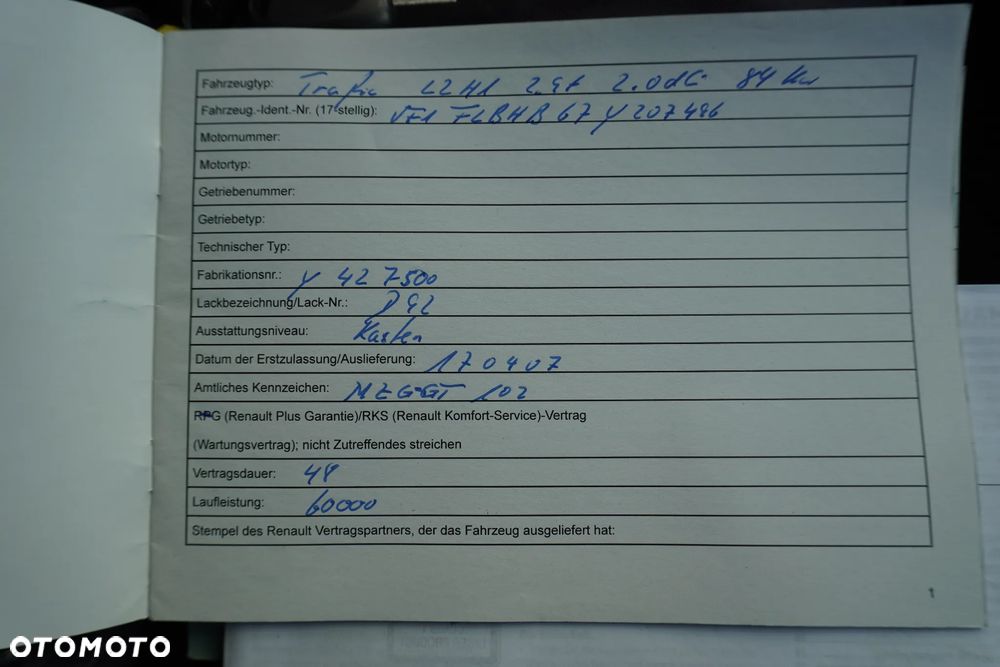 Fahrzeugtyp: Trafic L2H1 2.9t 2.0dCi 84 Kw
Fahrzeug.-Ident.-Nr. (17-stellig): VF1 FLBHB67Y207486
Motornummer:
Motortyp:
Getriebenummer:
Getriebetyp:
Technischer Typ:
Fabrikationsnr.: Y 427500
Lackbezeichnung/Lack-Nr.: D42
Ausstattungsniveau: Kasten
Datum der Erstzulassung/Auslieferung: 170407
Amtliches Kennzeichen: MZG-GT 102
RPG (Renault Plus Garantie)/RKS (Renault Komfort-Service)-Vertrag
(Wartungsvertrag); nicht Zutreffendes streichen
Vertragsdauer: 48
Laufleistung: 60000
Stempel des Renault Vertragspartners, der das Fahrzeug ausgeliefert hat:
1
OTOMOTO